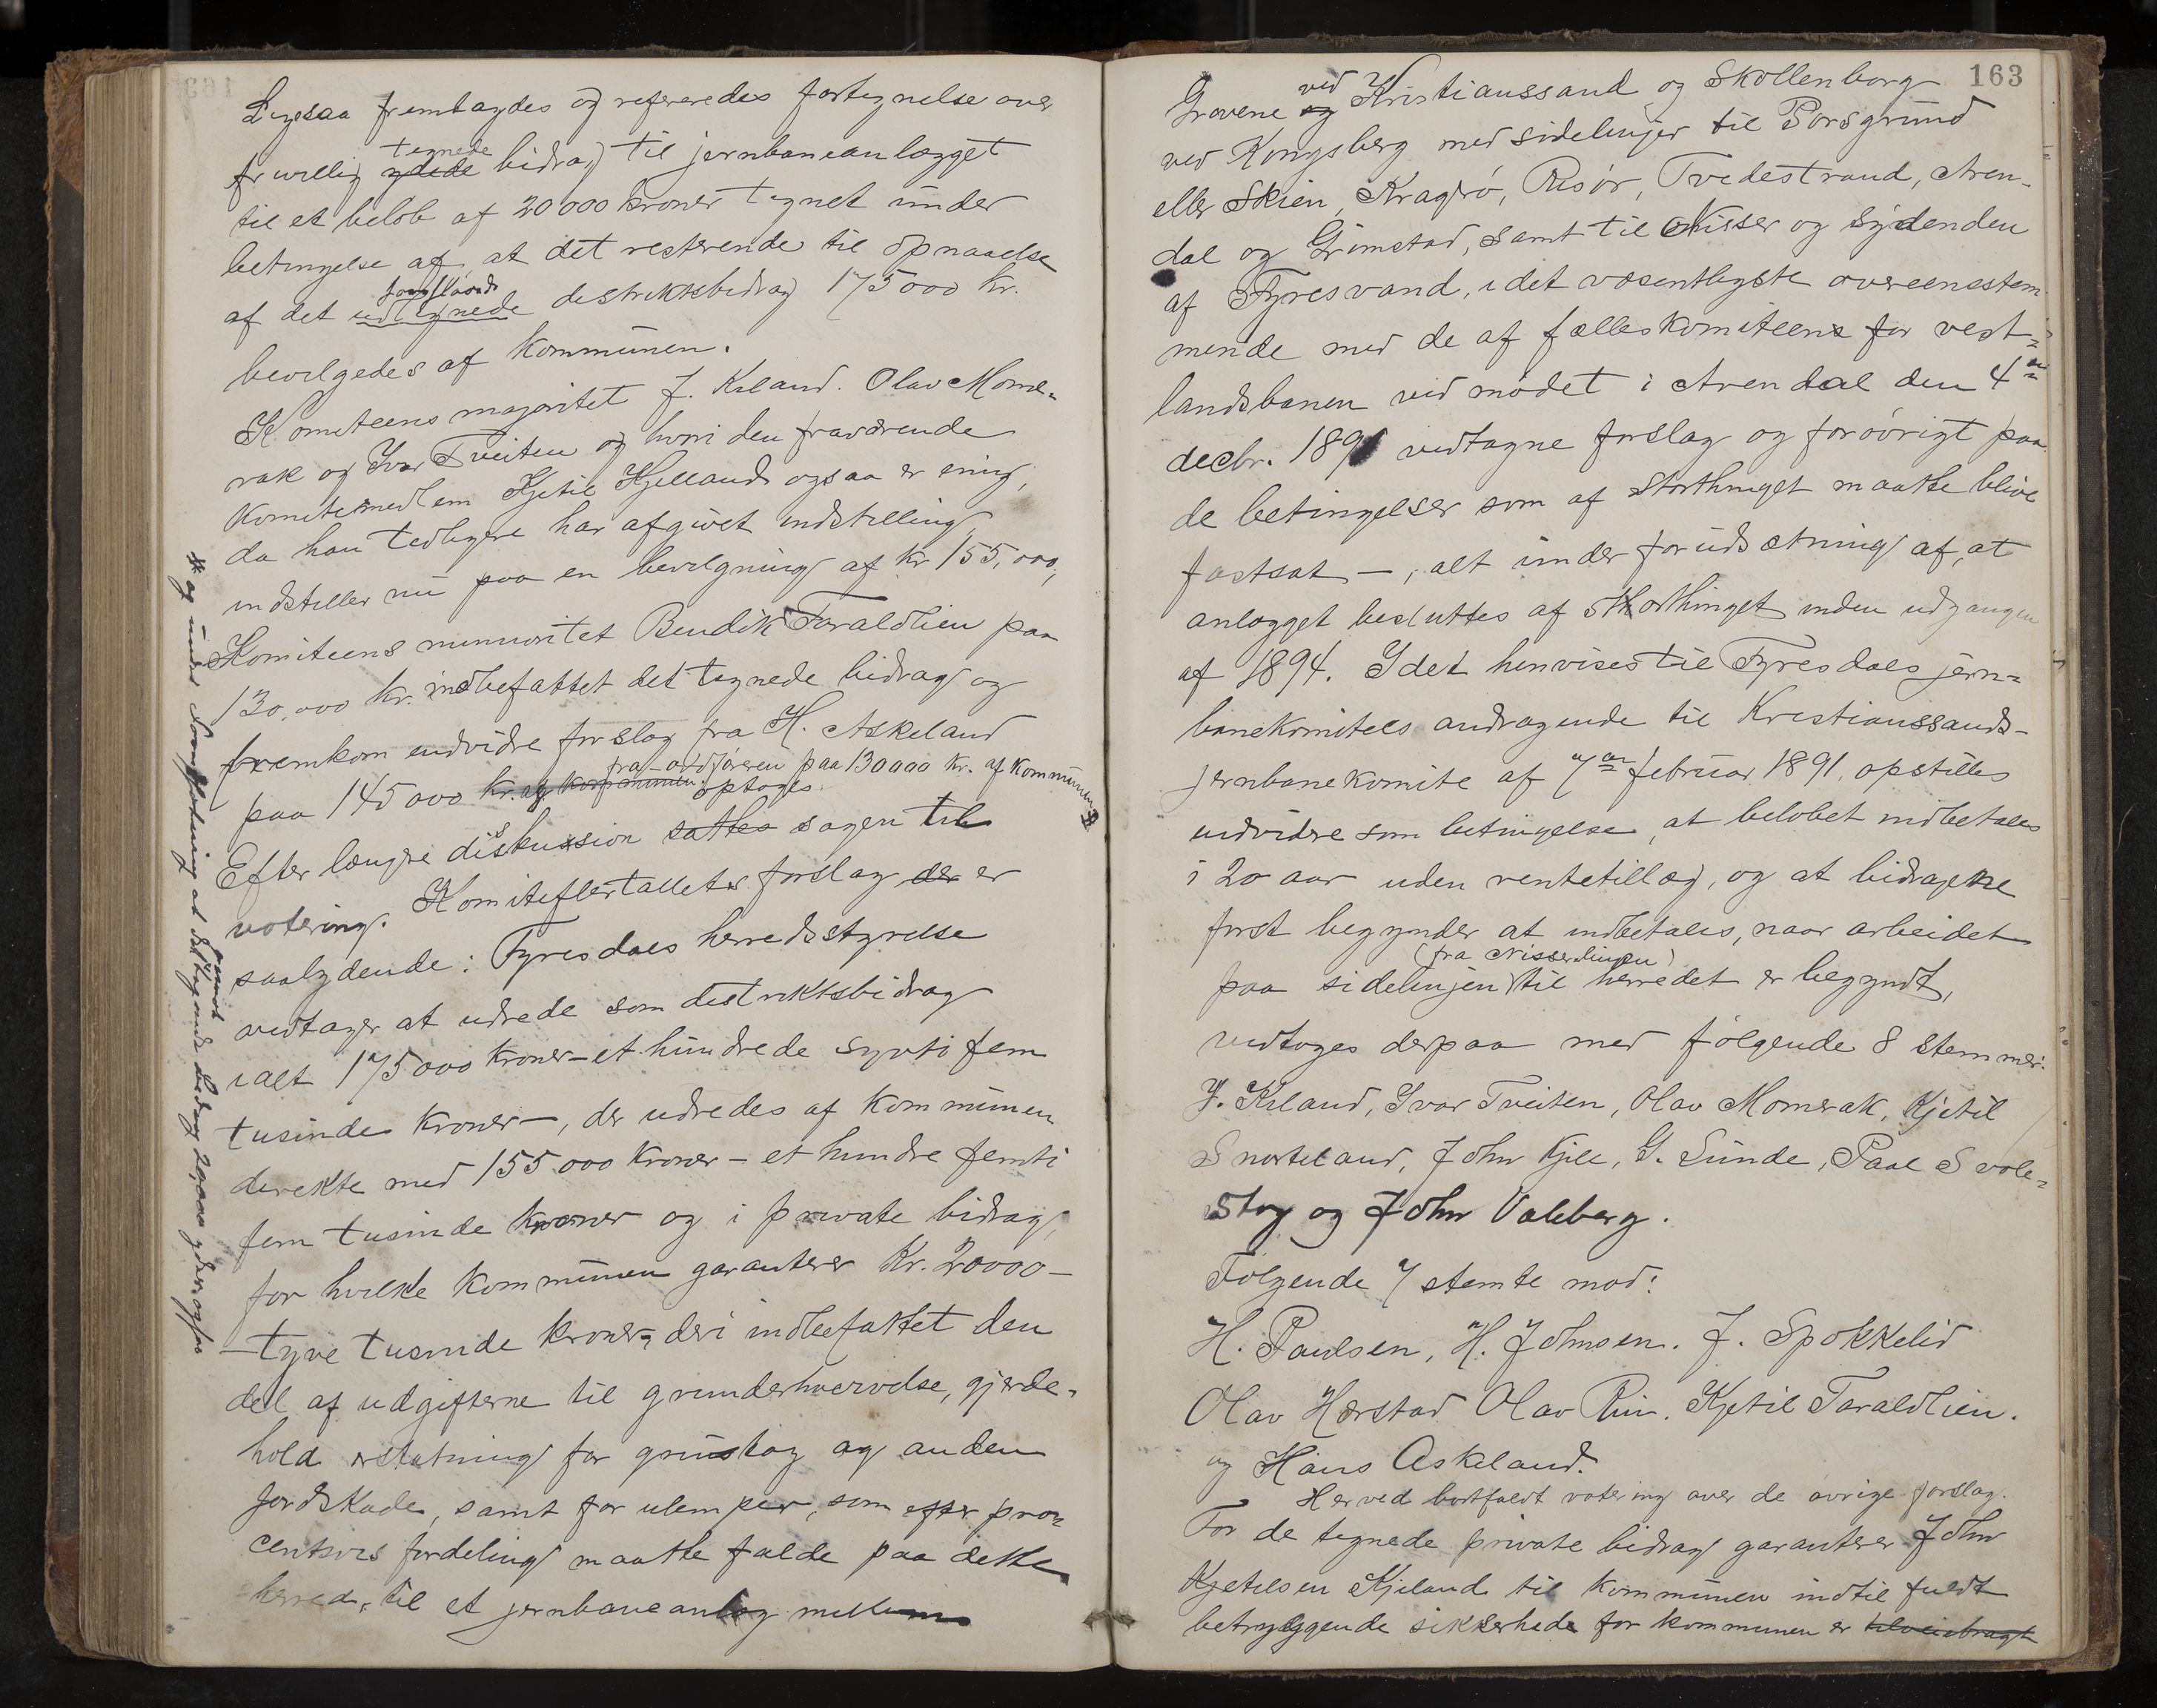 Ligesaa fremlagdes og refereredes fortegnelse over
frivillig ydede tegnede bidrag til jernbaneanlægget
til et beløb af 20000 kroner tegnet under
betingelse af, at det resterende til opnaaelse
af det udlignede foreslaaede distriktsbidrag 175000 kr.
bevilgedes af kommunen.
Komiteens majoritet J. Kiland. Olav Mome-
rak og Ivar Tveiten og hvori den fraværende
Komitemedlem Kjetil Hjelland ogsaa er enig,
da han tidligere har afgivet indstilling,
indstiller nu paa en bevilgning af kr 155,000,
Komiteens minoritet Bendik Taraldlien paa
130,000 kr. indbefattet det tegnede bidrag og
fremkom endvidre forslag fra H. Askeland
paa 145000 kr. af kommunen. fra ordføreren paa 130000 kr. af kommunen
optoges.
Efter længre diskussion sattes sagen til
votering. Komiteflertallets forslag der er
saalydende: Tyresdals herredsstyrelse
vedtager at udrede som distriktsbidrag
ialt 175000 kroner – et hundrede sytti fem
tusinde kroner –, der udredes af kommunen
direkte med 155000 kroner – et hundre femti
fem tusinde kroner og i private bidrag,
for hvilke kommunen garanterer Kr. 20000 –
– tyve tusinde kroner, deri indbefattet den
del af udgifterne til grunderhvervelse, gjerde-
hold erstatning for grustag og anden
jordskade, samt for ulemper, som efter pro-
centsvis fordeling maatte falde paa dette
herred, til et jernbaneanlæg mellem
og under forudsætning at det
bidrag 20,000
163
Grovene og ved Kristianssand og Skollenborg
ved Kongsberg med sidelinjer til Porsgrund
eller Skien, Kragerø, Risør, Tvedestrand, Aren-
dal og Grimstad, samt til Nisser og sydenden
af Fyresvand, i det væsentligste overeensstem-
mende med de af fælleskomiteen for vest-
landsbanen ved mødet i Arendal den 4de
decbr. 1891 vedtagne forslag og forøvrigt paa
de betingelser som af Storthinget maatte blive
fastsat –, alt under forudsætning af, at
anlægget besluttes af Storthinget inden udgangen
af 1894. Idet henvises til Tyresdals jern-
banekomites andragende til Kristianssands-
jernbanekomite af 7de februar 1891, opstilles
endvidere som betingelse, at beløbet indbetales
i 20 aar uden rentetillæg, og at bidragene
først begynder at indbetales, naar arbeidet
paa sidelinjen (fra Nisserlinjen) til herredet er begyndt,
vedtoges derpaa med følgende 8 stemmer:
J. Kiland, Ivar Tveiten, Olav Momrak, Kjetil
Snarteland, John Kjile, G. Sunde, Paal Svole-
stog og John Valeberg.
Følgende 7 stemte mod:
H. Paulsen, H. Johnsen. J. Spokkelid
Olav Hærstad Olav Rui. Kjetil Taraldlien.
og Hans Askeland.
Herved bortfaldt votering over de øvrige forslag.
For de tegnede private bidrag garanterer John
Kjetilsen Kjiland til kommunen indtil fuldt
betryggende sikkerhede for kommunen er tilveiebragt